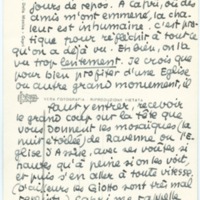 jours de repos. A Capri, où des
amis m'ont emmené, la cha-
leur est inhumaine, c'est pra-
tique pour réfléchir à tout ce
qu'on a déjà vu. Eh bien, on l'a
vu trop lentement. Je crois que
pour bien profiter d'une Eglise
ou autre grand monument, il
faut y entrer, recevoir
le grand coup sur la tête que
vous donnent les mosaïques (la
nuit étoilée) de Ravenne ou l'E-
glise d'Assise, avec ses voûtes si
hautes qu'à peine si on les voit,
et puis s'en aller à toute vitesse,
(d'ailleurs les Giotto sont très mal
Capri me rappelle